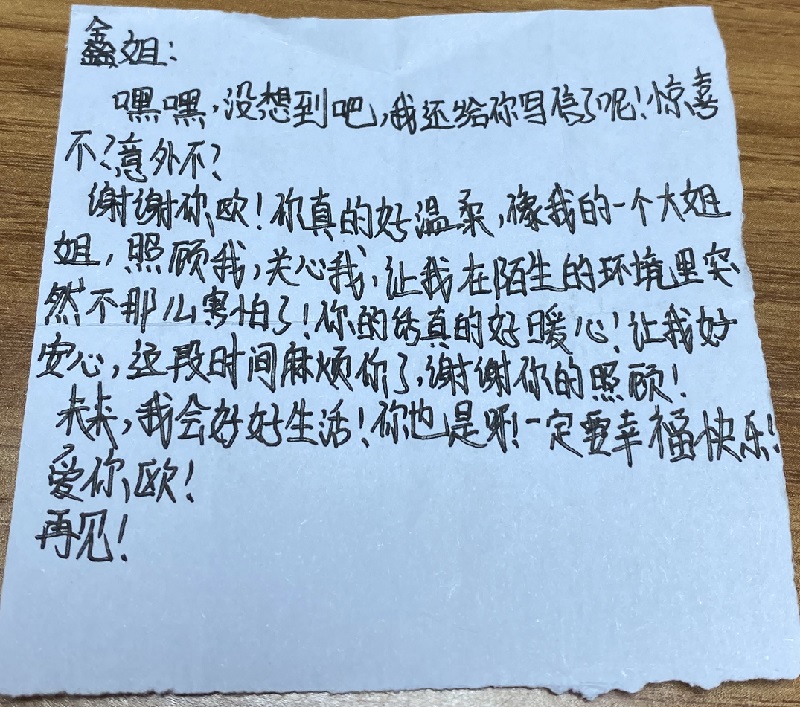 鑫姐：
嘿嘿，没想到吧，我还给你写信了呢！惊喜
不？意外不？
谢谢你欧！你真的好温柔，像我的一个大姐
姐，照顾我，关心我，让我在陌生的环境里突
然不那么害怕了！你的话真的好暖心！让我好
安心，这段时间麻烦你了，谢谢你的照顾！
未来，我会好好生活！你也是呀！一定要幸福快乐！
爱你欧！
再见！